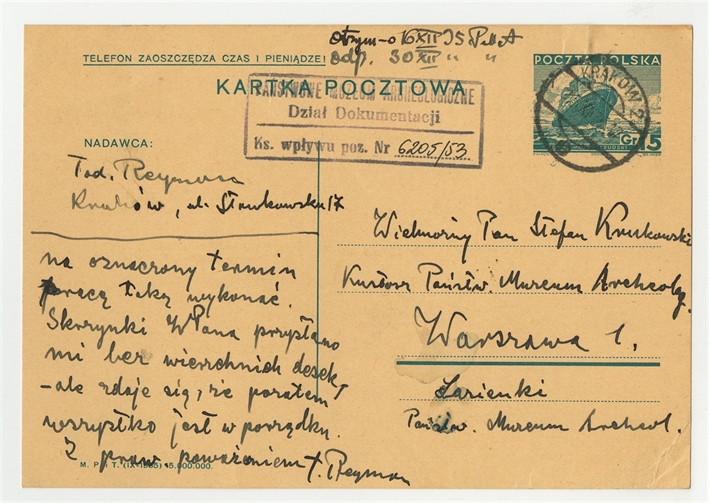 otrzym-o 16 XII 35
TELEFON ZAOSZCZĘDZA CZAS I PIENIĄDZE!
odp. 30 XII " "
POCZTA POLSKA
KARTKA POCZTOWA
KRAKÓW 2
PAŃSTWOWE MUZEUM ARCHEOLOGICZNE
Dział Dokumentacji
Ks. wpływu poz. Nr 6205/53
Gr. 15
NADAWCA:
Tad. Reyman
Kraków, ul. Sławkowska 17
na oznaczony termin
pracę taką wykonać.
Skrzynki W Pana przysłano
mi bez wierzchnich desek,
- ale zdaje się, że poza tem
wszystko jest w porządku.
Z praw. poważaniem T. Reyman
Wielmożny Pan Stefan Krukowski
Kustosz Państw. Muzeum Archeolog.
Warszawa 1.
Łazienki
Państw. Muzeum Archeol.
M. P. i T. (IX-1935) 5.000.000.